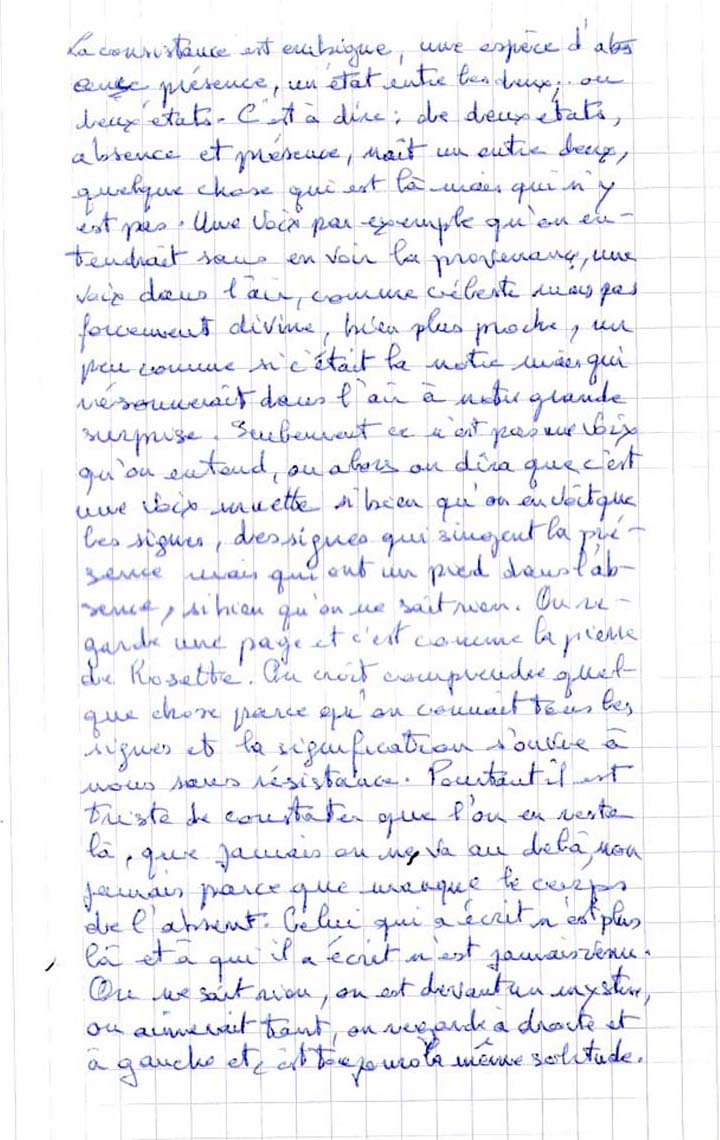 La consistance est ambigue, une espèce d'abs
ence présence, un état entre les deux, ou
deux états. C'est à dire : de deux états,
absence et présence, naît un entre deux,
quelque chose qui est là mais qui n'y
est pas. Une voix par exemple qu'on en-
tendrait sans en voir la provenance, une
voix dans l'air, comme céleste mais pas
forcement divine, bien plus proche, un
peu comme si c'était la notre mais qui
résonnerait dans l'air à notre grande
surprise. Seulement ce n'est pas une voix
qu'on entend, ou alors on dira que c'est
une voix muette si bien qu'on en voit que
les signes, des signes qui singent la pré-
sence mais qui ont un pied dans l'ab-
sence, si bien qu'on ne sait rien. On re-
garde une page et c'est comme la pierre
de Rosette. On croit comprendre quel-
que chose parce qu'on connait tous les
signes et la signification s'ouvre à
nous sans résistance. Pourtant il est
triste de constater que l'on en reste
là, que jamais on ne va au delà, non
jamais parce que manque le corps
de l'absent. Celui qui a écrit n'est plus
là et à qui il a écrit n'est jamais venu.
On ne sait rien, on est devant un mystère,
on aimerait tant, on regarde à droite et
à gauche et c'est toujours la même solitude.